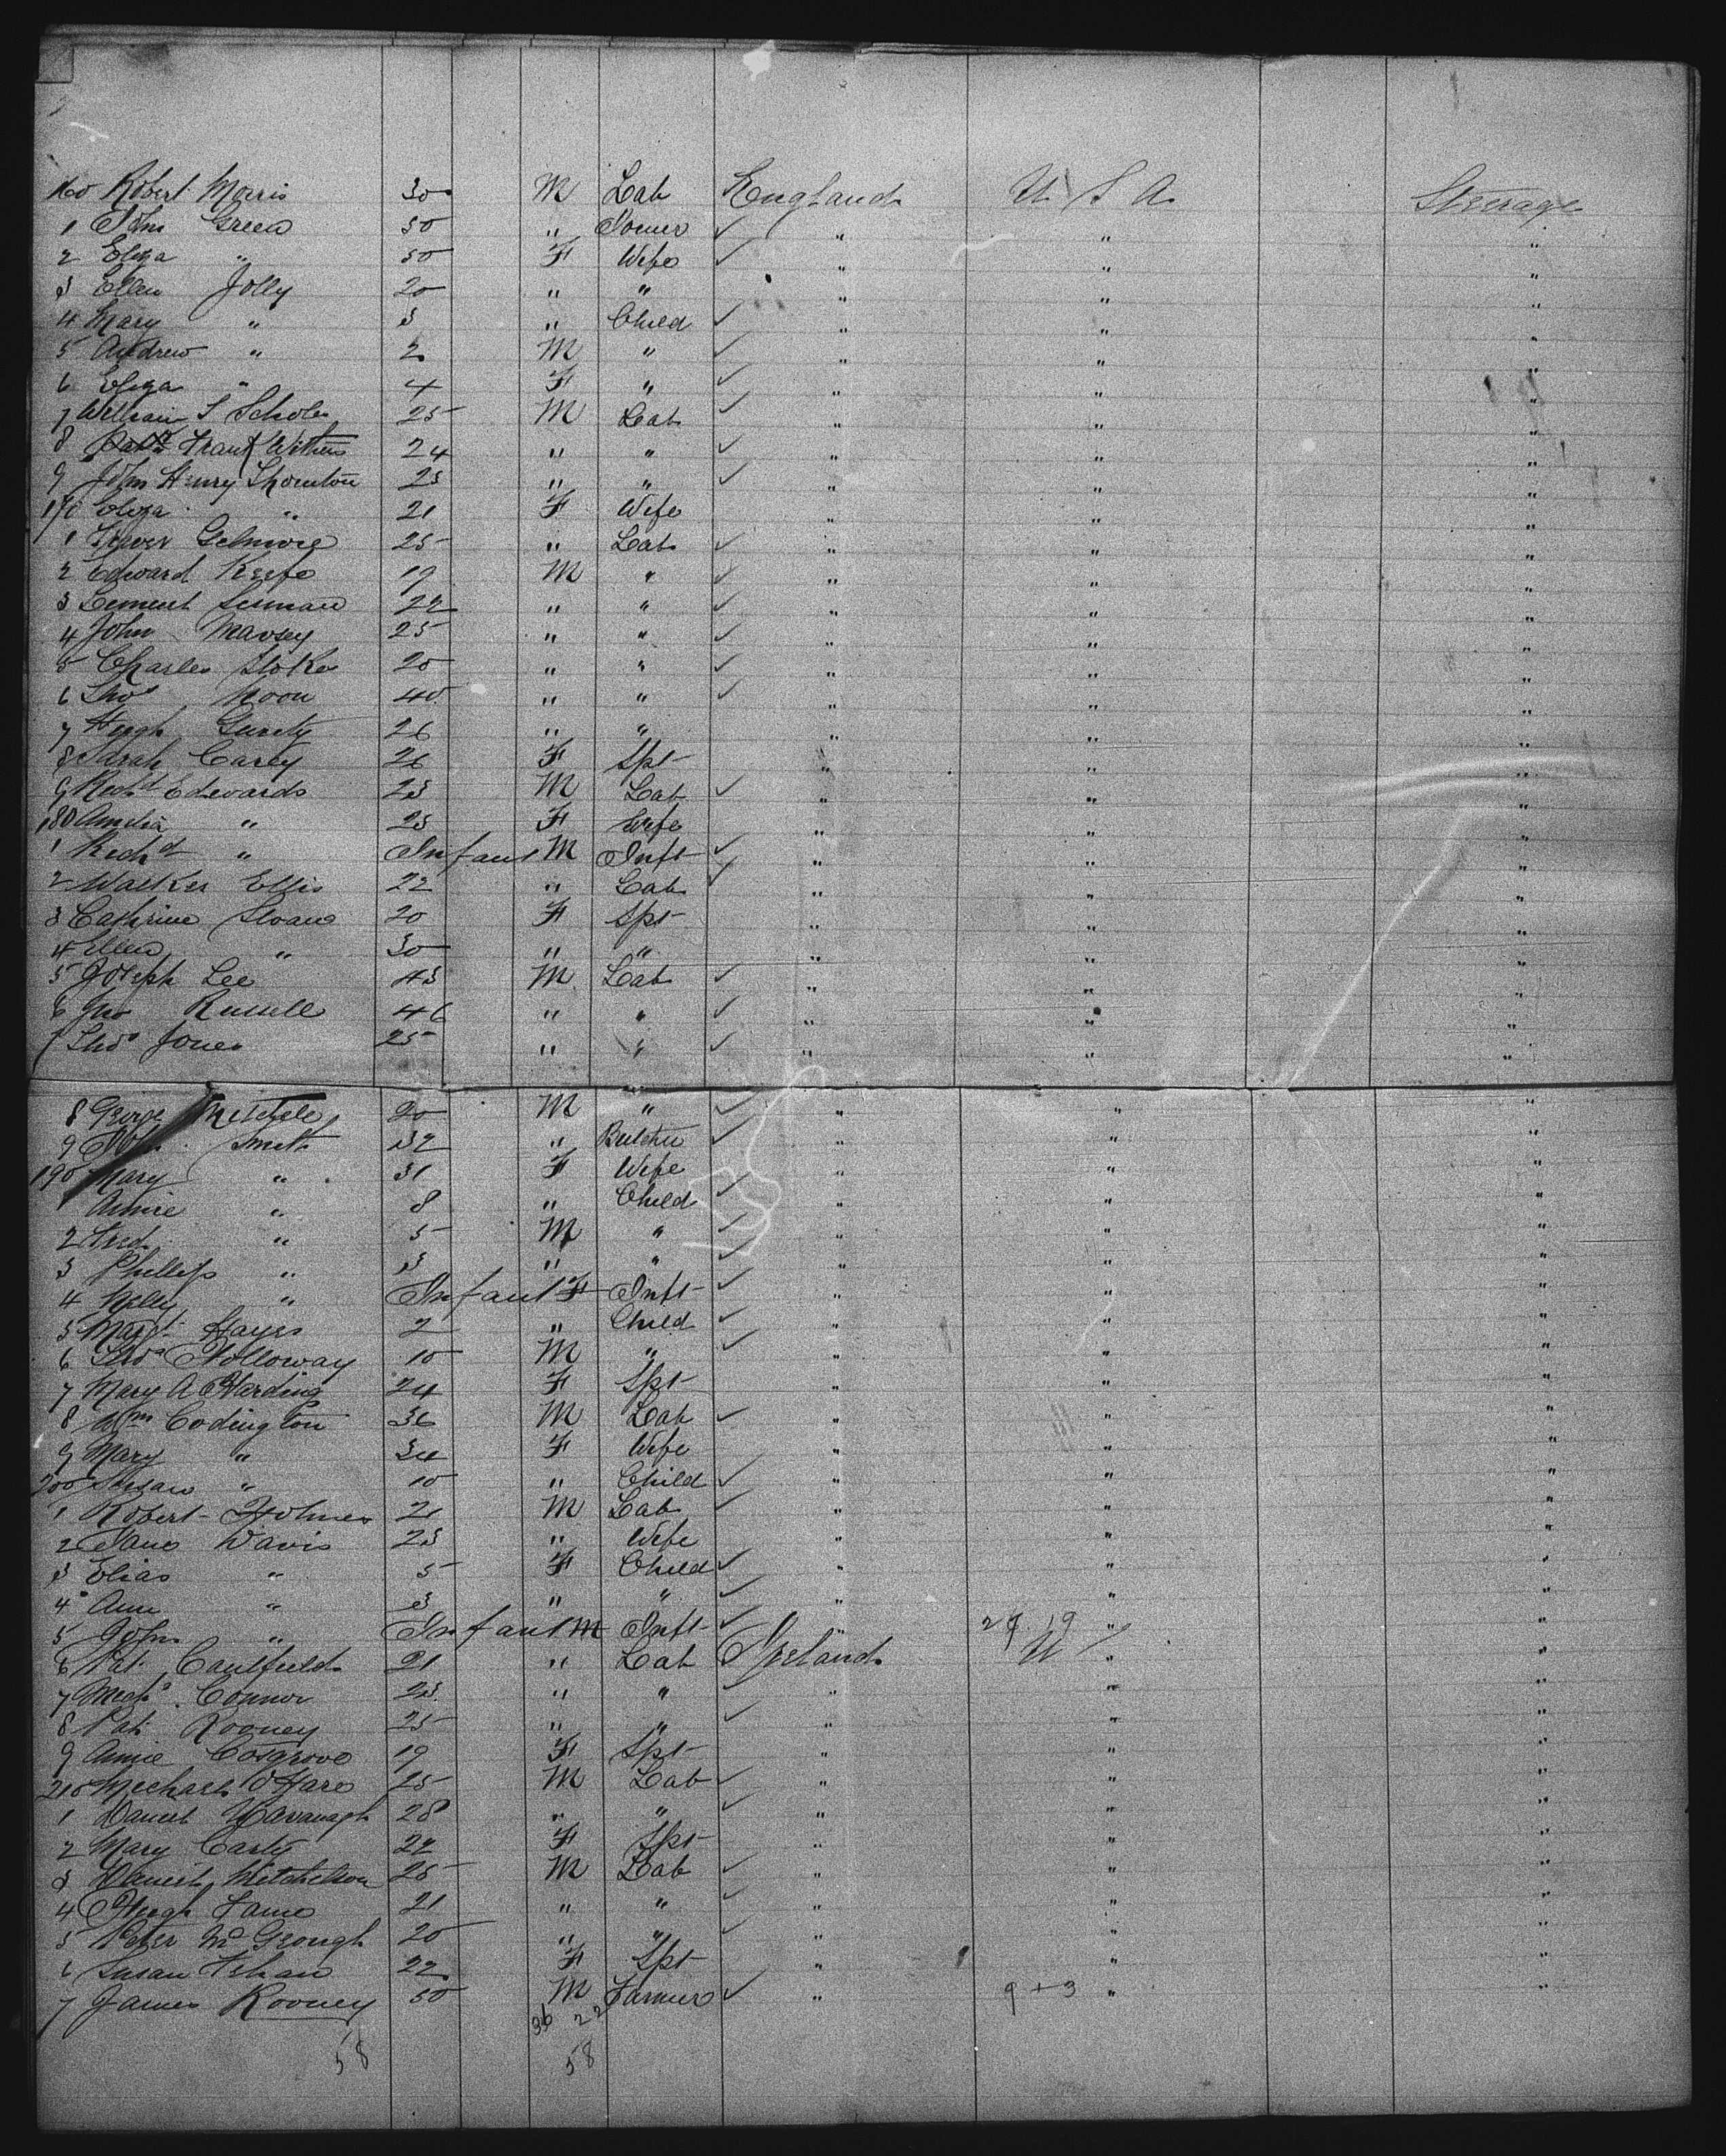 160 Robert Morris 30 M Lab England U. S. A. Steerage
1 John Green 50 " ✓ " " "
2 Eliza " 50 F Wife ✓ " " "
3 Ellen Jolly 20 " " " " "
4 Mary " 3 " Child ✓ " " "
5 Andrew " 2 M " ✓ " " "
6 Eliza " 4 F " ✓ " " "
7 William S Scholes 25 M Lab ✓ " " "
8 Frank Withers 24 " " ✓ " " "
9 John Henry Thornton 23 " " ✓ " " "
170 Eliza " 21 F Wife " " "
1 25 " Lab ✓ " " "
2 Edward Keefe 19 M " ✓ " " "
3 22 " " ✓ " " "
4 John 25 " " ✓ " " "
5 Charles Stokes 20 " " ✓ " " "
6 Thos Noon 40 " " ✓ " " "
7 Hugh 26 " " " " "
8 Sarah Carey 26 F Spt " " "
9 Richd Edwards 23 M Lab ✓ " " "
180 Amelia " 23 F Wife " " "
1 Richd " Infant M Inft ✓ " " "
2 Walker Ellis 22 " Lab ✓ " " "
3 Cathrine Sloane 20 F Spt " " "
4 Ellen " 30 " " " " "
5 Joseph Lee 43 M Lab ✓ " " "
6 Jno Russell 46 " " ✓ " " "
7 Thos Jones 25 " " ✓ " " "
8 George Mitchell 20 M " ✓ " " "
9 Smith 32 " Butcher ✓ " " "
190 Mary " 31 F Wife " " "
1 Annie " 8 " Child ✓ " " "
2 Fred " 5 M " ✓ " " "
3 Phillip " 3 " " ✓ " " "
4 Nelly " Infant F Inft ✓ " " "
5 Margt Hayes 2 " Child ✓ " " "
6 Thos Holloway 10 M " ✓ " " "
7 Mary A Harding 24 F Spt " " "
8 Wm Codington 36 M Lab ✓ " " "
9 Mary " 34 F Wife " " "
200 Susan " 10 " Child ✓ " " "
1 Robert Holmes 21 M Lab ✓ " " "
2 Jane Davis 23 " Wife " " "
3 Elias " 5 F Child ✓ " " "
4 Ann " 3 " " ✓ " " "
5 John " Infant M Inft ✓ " 29. 19 " "
6 Pat. Caulfield 21 " Lab Ireland U " "
7 Michl Connor 23 " " ✓ " " "
8 Pat. Rooney 25 " " ✓ " " "
9 Annie Cosgrove 19 F Spt " " "
210 Michael O'Hare 25 M Lab ✓ " " "
1 Daniel Kavanagh 28 " " ✓ " " "
2 Mary Carty 22 F Spt " " "
3 Daniel Mitchelson 25 M Lab ✓ " " "
4 Hugh 21 " " ✓ " " "
5 Peter McGeough 20 " " ✓ " " "
6 Susan 22 F Spt " " "
7 James Rooney 50 M Farmer ✓ " 9 + 3 " "
36 22
58 58